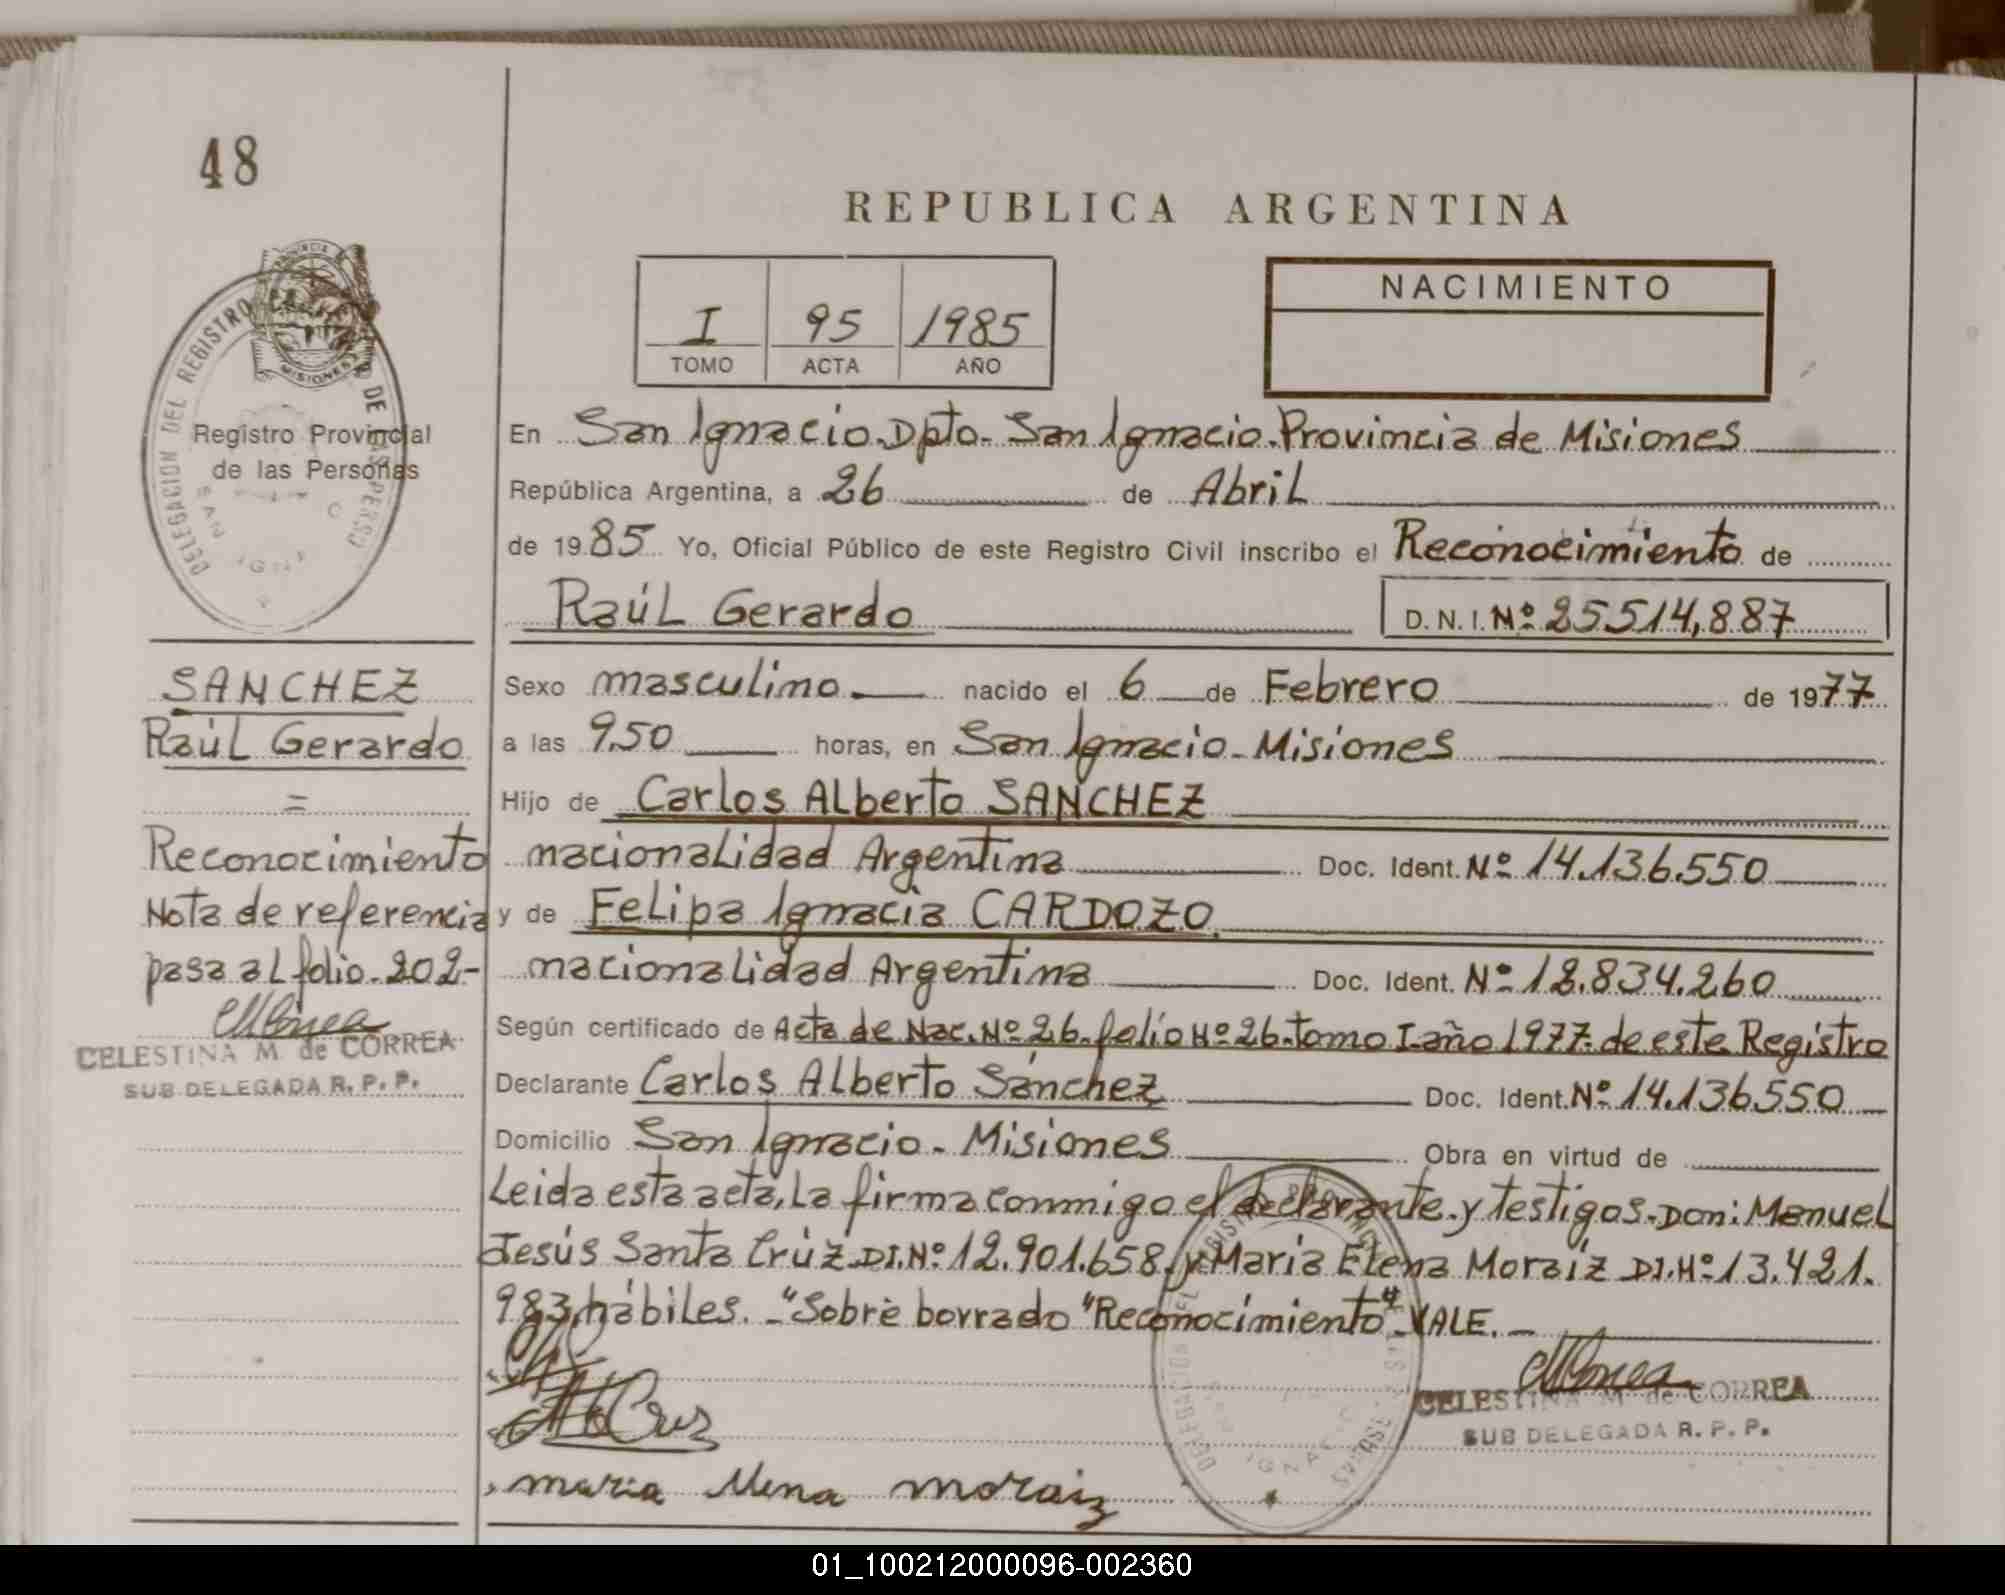 48
REPUBLICA ARGENTINA
I 95 1985
TOMO ACTA AÑO
NACIMIENTO
PROVINCIA
MISIONES
DELEGACION DEL REGISTRO
DE
SAN
Registro Provincial
de las Personas
SANCHEZ
Raúl Gerardo
=
Reconocimiento
Nota de referencia
pasa al folio. 202-
CELESTINA M. de CORREA
SUB DELEGADA R. P. P.
En San Ignacio. Dpto. San Ignacio. Provincia de Misiones
República Argentina, a 26 de Abril
de 1985 Yo, Oficial Público de este Registro Civil inscribo el Reconocimiento de
Raúl Gerardo D. N. I. Nº 25514,887
Sexo masculino. nacido el 6 de Febrero de 1977
a las 9,50 horas, en San Ignacio - Misiones
Hijo de Carlos Alberto SANCHEZ
nacionalidad Argentina Doc. Ident. Nº 14.136.550
y de Felipa Ignacia CARDOZO.
nacionalidad Argentina Doc. Ident. Nº 12.834.260
Según certificado de Acta de Nac. Nº 26. folio Nº 26. tomo I. año 1977. de este Registro
Declarante Carlos Alberto Sánchez Doc. Ident. Nº 14.136550
Domicilio San Ignacio - Misiones Obra en virtud de
Leida esta acta, la firma conmigo el declarante. y testigos. Don: Manuel
Jesús Santa Crúz. DI. Nº 12.901.658. y María Elena Moraiz DI. Nº 13.421.
983, hábiles. - "Sobre borrado "Reconocimiento". VALE. -
Cruz
maria Elena moraiz
CELESTINA M. de CORREA
SUB DELEGADA R. P. P.
01_100212000096-002360